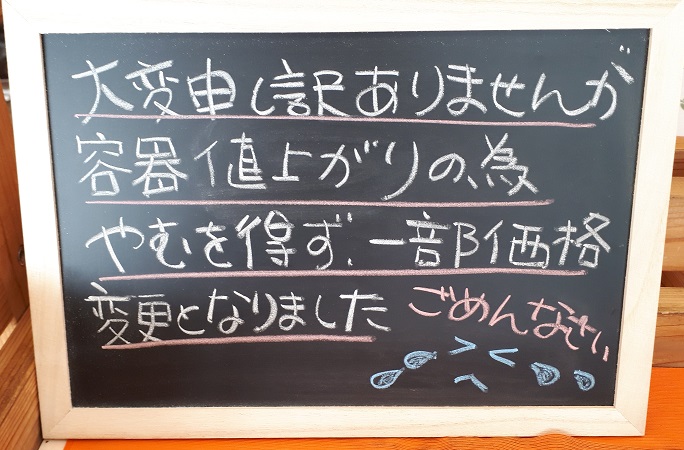 大変申し訳ありませんが
容器値上がりの、為
やむを得ず、一部価格
変更となりました ごめんなさい